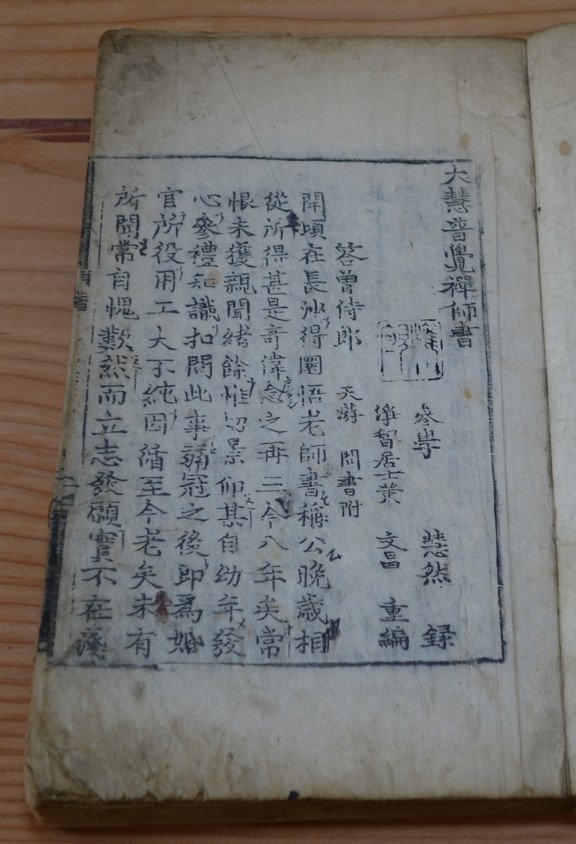 大慧普覺禪師書
參學 慧然 録
淨智居士黃 文昌 重編
答曾侍郎 天游 問書附
開頃在長沙得圜悟老師書稱公晩歲相
從所得甚是奇偉念之再三今八年矣常
恨未獲親聞緒餘惟切景仰某自幼年發
心參禮知識扣問此事弱冠之後卽爲婚
官所役用工夫不純因循至今老矣未有
所聞常自愧歎然而立志發願實不在淺